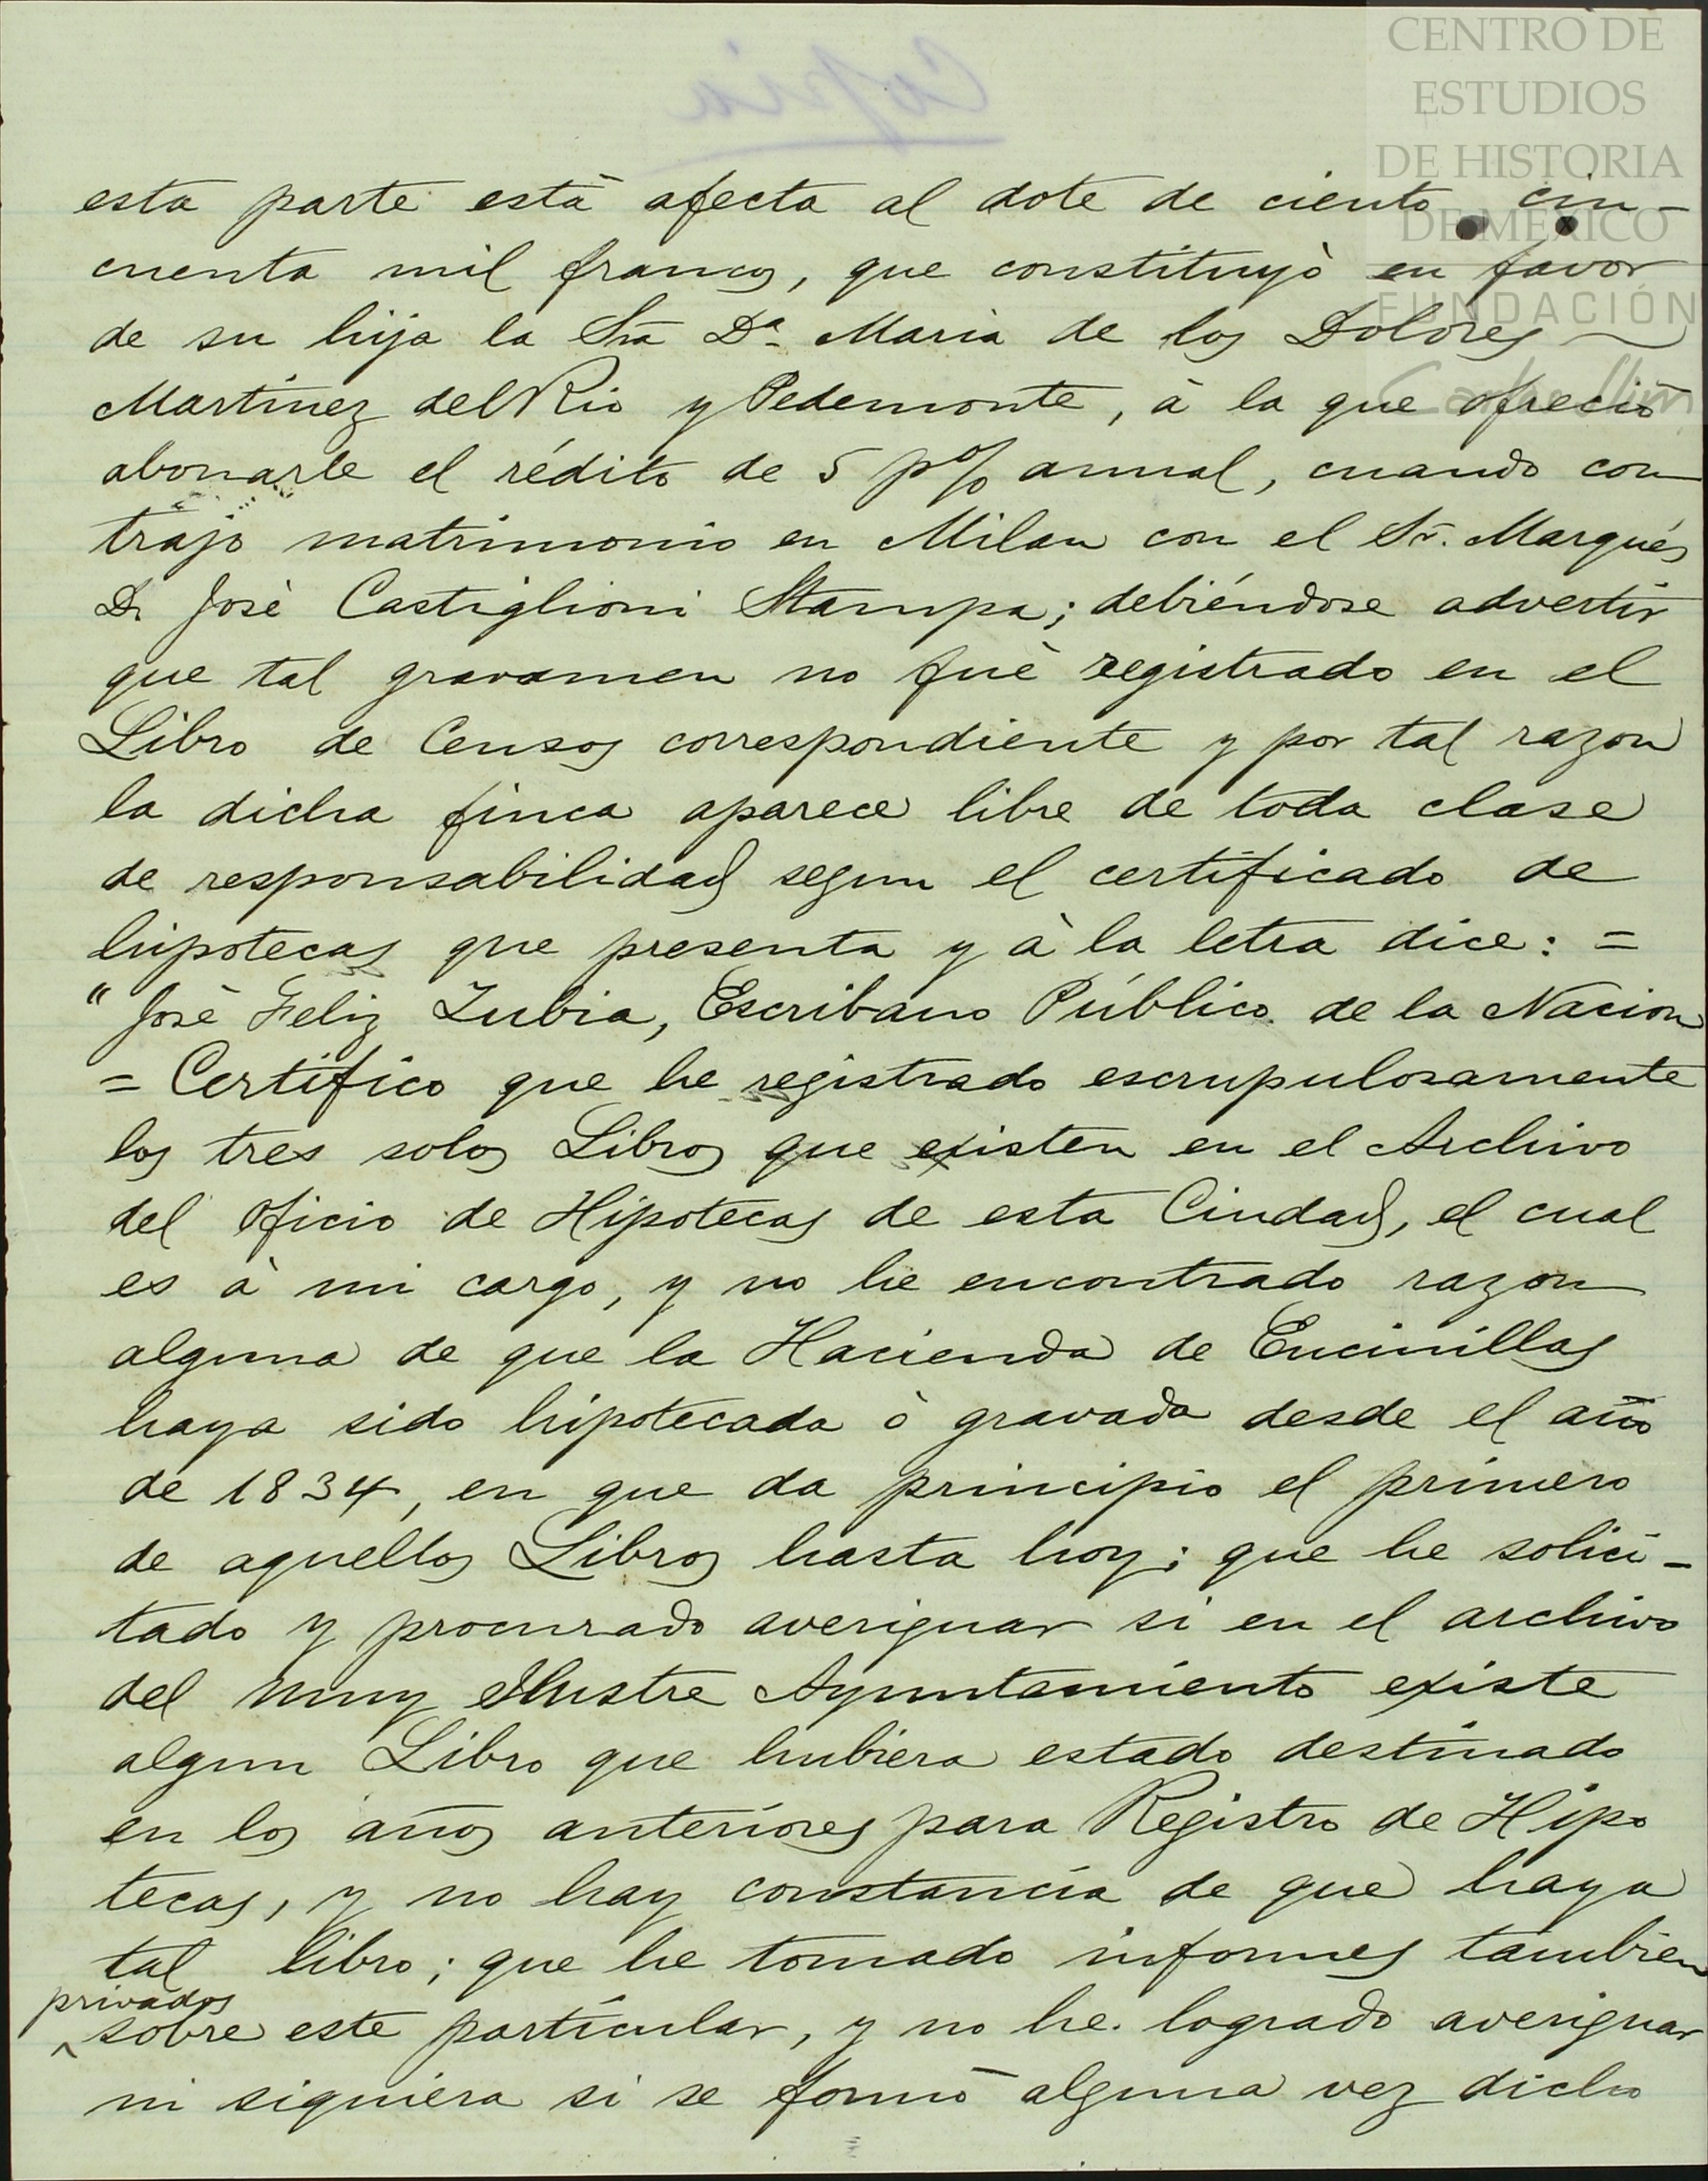 CENTRO DE
ESTUDIOS
DE HISTORIA
DE MEXICO
FUNDACIÓN
Carlos Slim
Copia
esta parte está afecta al dote de ciento cin-
cuenta mil francos, que constituyò en favor
de su hija la Sra Da. Maria de los Dolores
Martinez del Rio y Pedemonte, à la que ofreciò
abonarle el rédito de 5 p% anual, cuando con
trajo matrimonio en Milan con el Sr. Marqués
Dn José Castiglioni Stampa; debiéndose advertir
que tal gravamen no fuè registrado en el
Libro de Censos correspondiente y por tal razon
la dicha finca aparece libre de toda clase
de responsabilidad segun el certificado de
hipotecas que presenta y à la letra dice: =
" José Feliz Zubia, Escribano Público de la Nacion
= Certifico que he registrado escrupulosamente
los tres solos Libros que existen en el Archivo
del oficio de Hipotecas de esta Ciudad, el cual
es à mi cargo, y no he encontrado razon
alguna de que la Hacienda de Encinillas
haya sido hipotecada ò gravada desde el año
de 1834, en que da principio el primero
de aquellos Libros hasta hoy; que he solici-
tado y procurado averiguar si en el archivo
del muy Ilustre Ayuntamiento existe
algun Libro que hubiera estado destinado
en los años anteriores para Registro de Hipo
tecas, y no hay constancia de que haya
tal libro; que he tomado informes tambien
privados
^ sobre este particular, y no he logrado averiguar
ni siquiera si se formó alguna vez dicho